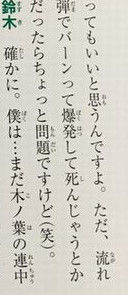 ってもいいと思うんですよ。ただ、流れ
弾でバーンって爆発して死んじゃうとか
だったらちょっと問題ですけど(笑)。
鈴木 確かに。僕は…まだ木ノ葉の連中